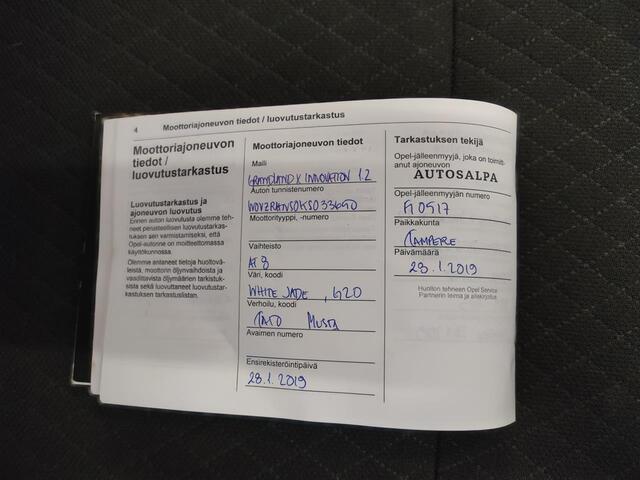 4
Moottoriajoneuvon tiedot / luovutustarkastus
Moottoriajoneuvon
tiedot /
luovutustarkastus
Luovutustarkastus ja
ajoneuvon luovutus
Ennen auton luovutusta olemme teh-
neet perusteellisen luovutustarkas-
tuksen sen varmistamiseksi, että
Opel-autonne on moitteettomassa
käyttökunnossa.
Olemme antaneet tietoja huoltovä-
leistä, moottorin öljynvaihdosta ja
vaadittavista öljymäärien tarkistuk-
sista sekä luovuttaneet luovutustar-
kastuksen tarkastuslistan.
Moottoriajoneuvon tiedot
Malli
GRANDLAND X INNOVATION 1.2
Auton tunnistenumero
Moottorityyppi, -numero
Vaihteisto
AT 8
Väri, koodi
WHITE JADE, G20
Verhoilu, koodi
MUSTA
Avaimen numero
Ensirekisteröintipäivä
28.1.2019
Tarkastuksen tekijä
Opel-jälleenmyyjä, joka on toimit-
tanut ajoneuvon
AUTOSALPA
Opel-jälleenmyyjän numero
FI0517
Paikkakunta
TAMPERE
Päivämäärä
28.1.2019
Huollon tehneen Opel Service
Partnerin leima ja allekirjoitus